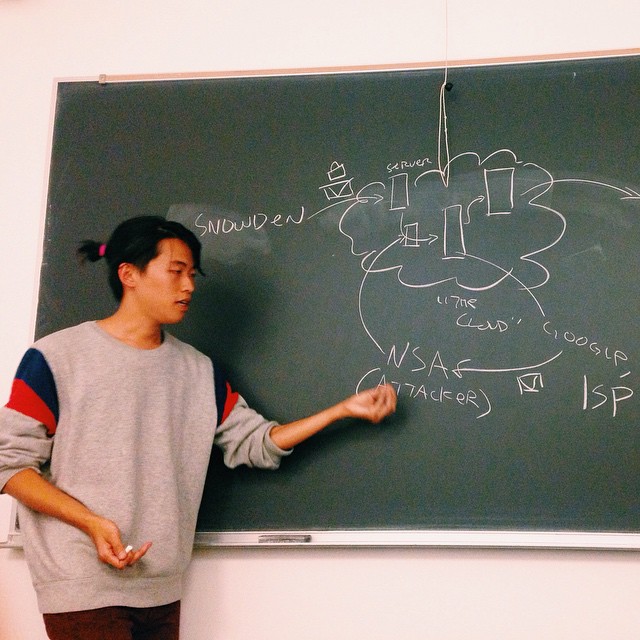 SERVER
SNOWDEN
"THE
CLOUD"
GOOGLE,
NSA
(ATTACKER)
ISP